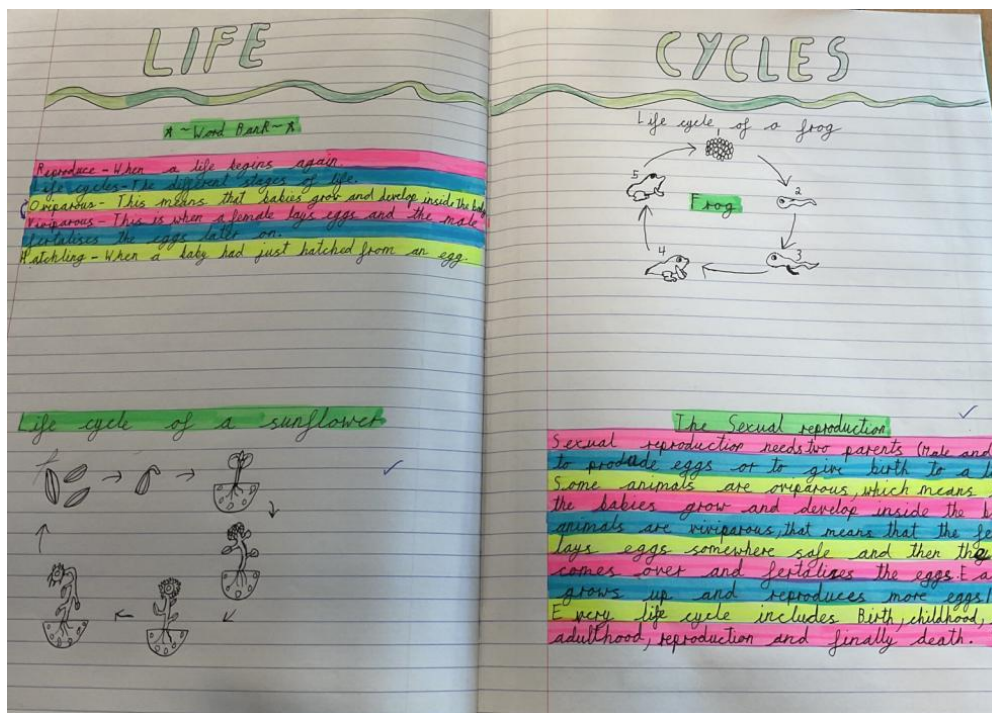 LIFE
*~Word Bank~*
Reproduce - When a life begins again.
Life cycles - The different stages of life.
Oviparous - This means that babies grow and develop inside the body
Viviparous - This is when a female lays eggs and the male
fertalises the eggs later on.
Hatchling - When a baby had just hatched from an egg.
Life cycle of a sunflower
CYCLES
Life cycle of a frog
1
2
3
4
5
Frog
The Sexual reproduction
Sexual reproduction needs two parents (Male and
to produde eggs or to give birth to a
Some animals are oviparous, which means
the babies grow and develop inside the
animals are viviparous, that means that the
lays eggs somewhere safe and then the
comes over and fertalizes the eggs.
grows up and reproduces more eggs
Every life cycle includes Birth, childhood,
adulthood, reproduction and finally death.